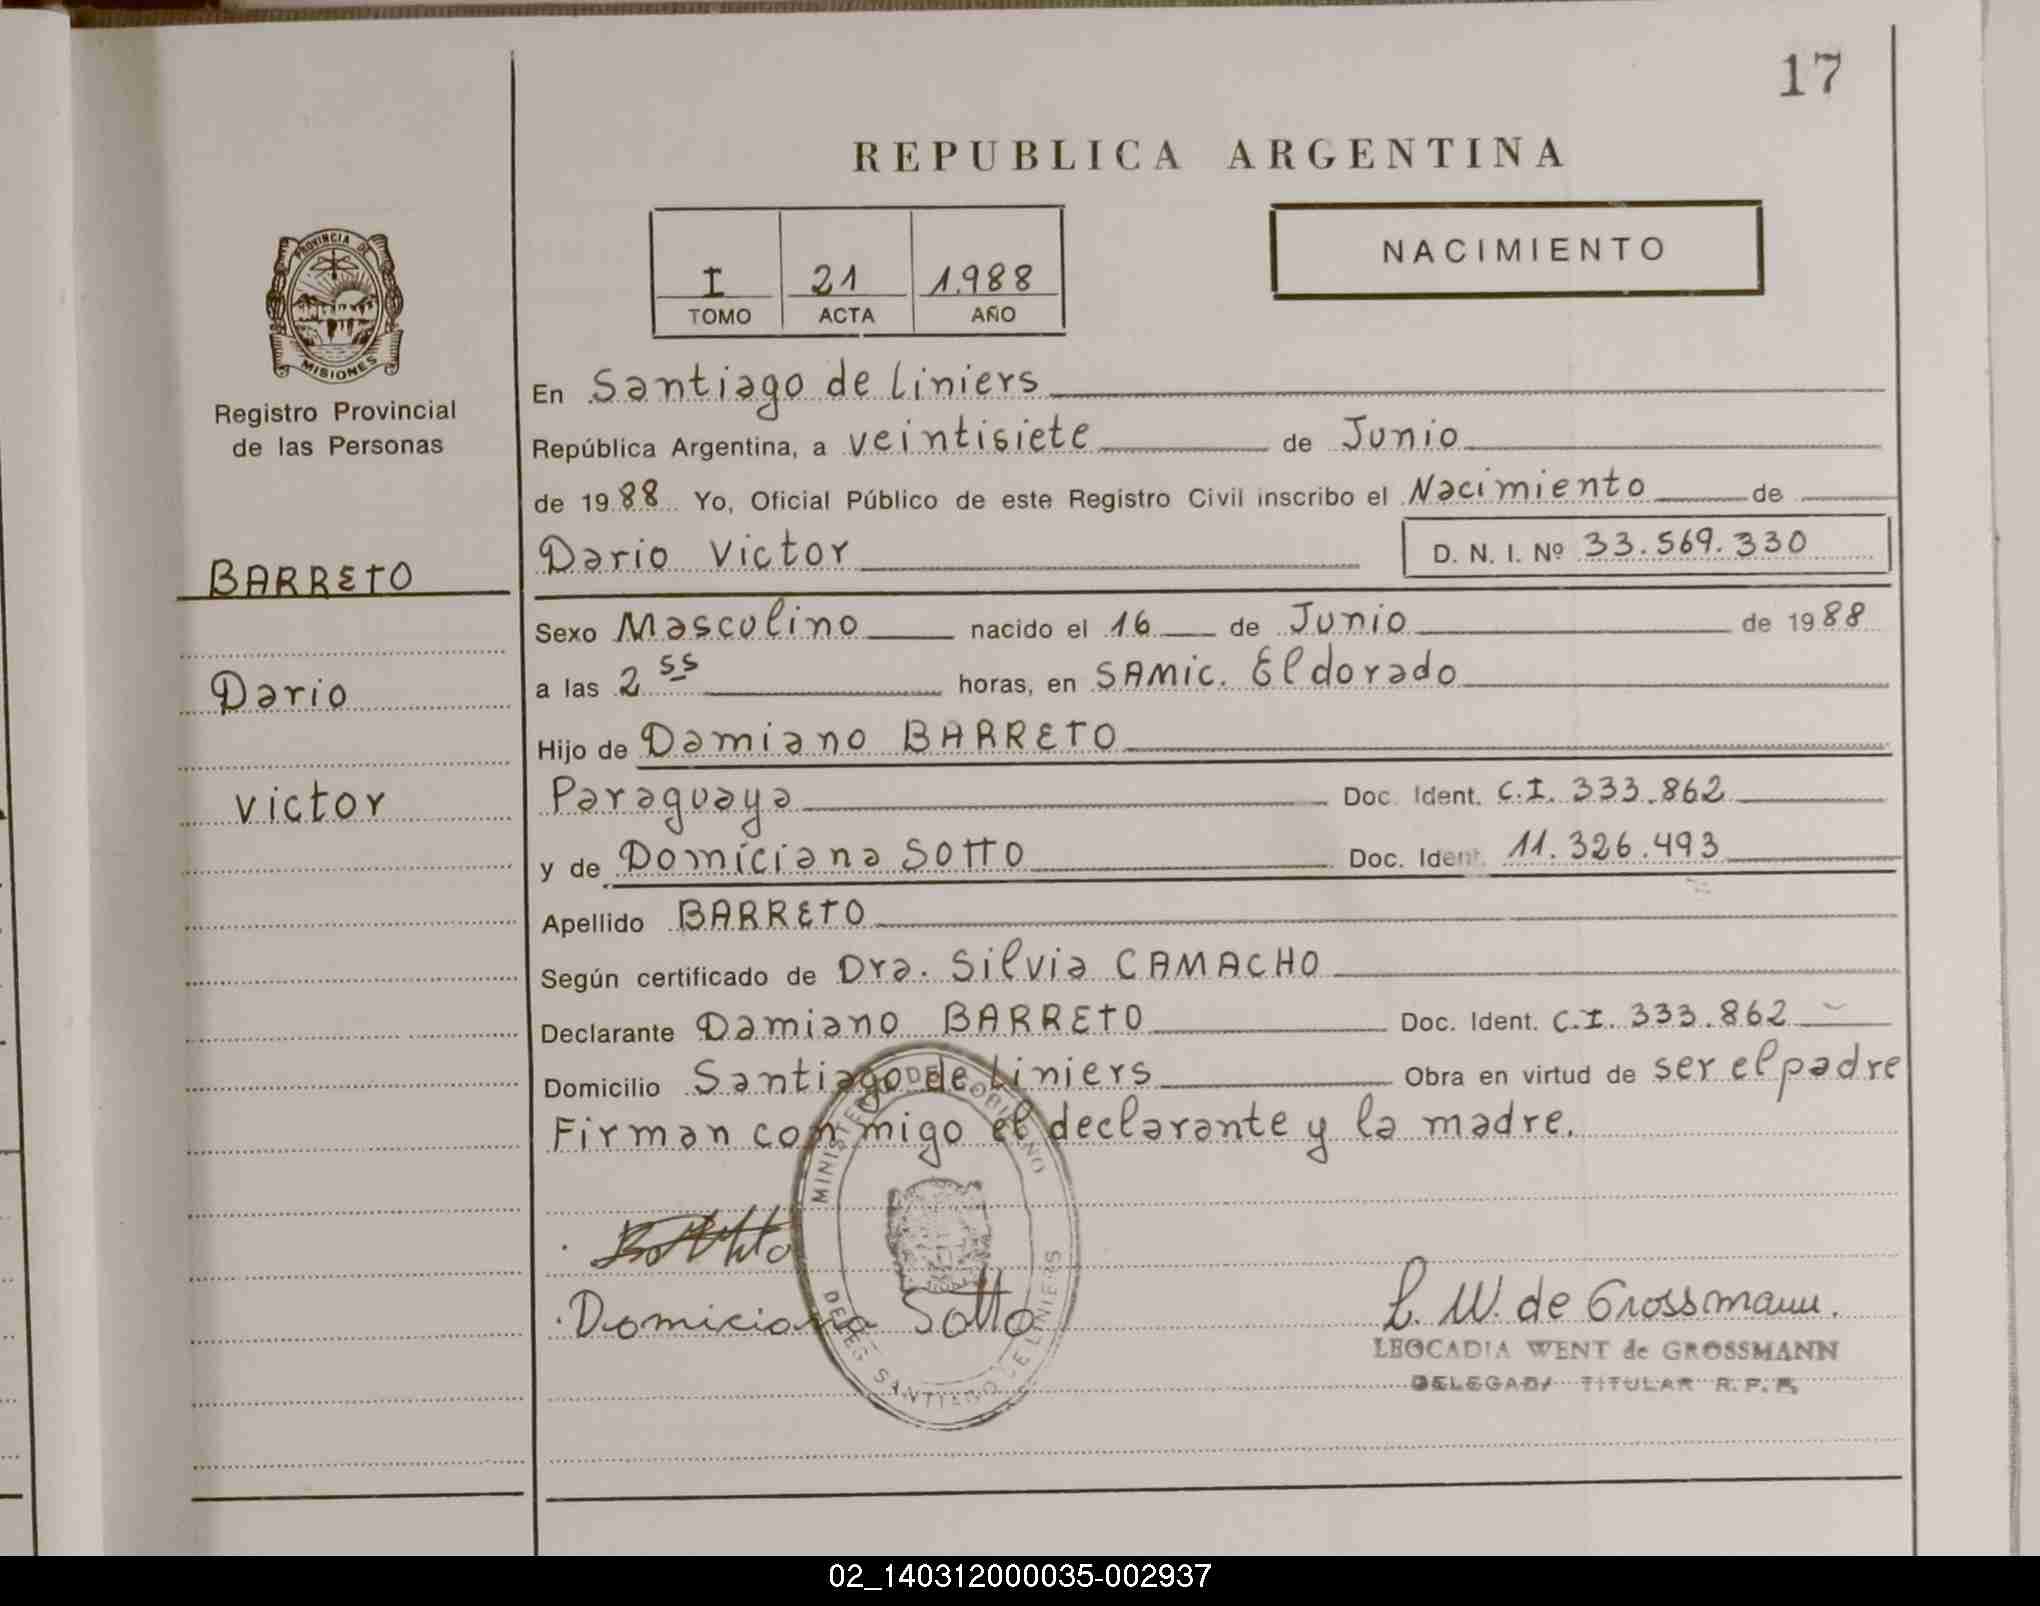 17
REPUBLICA ARGENTINA
PROVINCIA DE
MISIONES
Registro Provincial
de las Personas
BARRETO
Dario
Victor
I 21 1.988
TOMO ACTA AÑO
NACIMIENTO
En Santiago de Liniers
República Argentina, a veintisiete de Junio
de 1988 Yo, Oficial Público de este Registro Civil inscribo el Nacimiento de
Dario Victor D. N. I. Nº 33.569.330
Sexo Masculino nacido el 16 de Junio de 1988
a las 2 55 horas, en SAMIC. Eldorado
Hijo de Damiano BARRETO
Paraguaya Doc. Ident. C.I. 333.862
y de Domiciana SOTTO Doc. Ident. 11.326.493
Apellido BARRETO
Según certificado de Dra. Silvia CAMACHO
Declarante Damiano BARRETO Doc. Ident. C.I. 333.862
Domicilio Santiago de Liniers Obra en virtud de ser el padre
Firman conmigo el declarante y la madre.
MINISTERIO DE GOBIERNO
DELEG. SANTIAGO DE LINIERS
Domiciana Sotto
L. W. de Grossmann.
LEOCADIA WENT de GROSSMANN
DELEGADA TITULAR R. P. P.
02_140312000035-002937